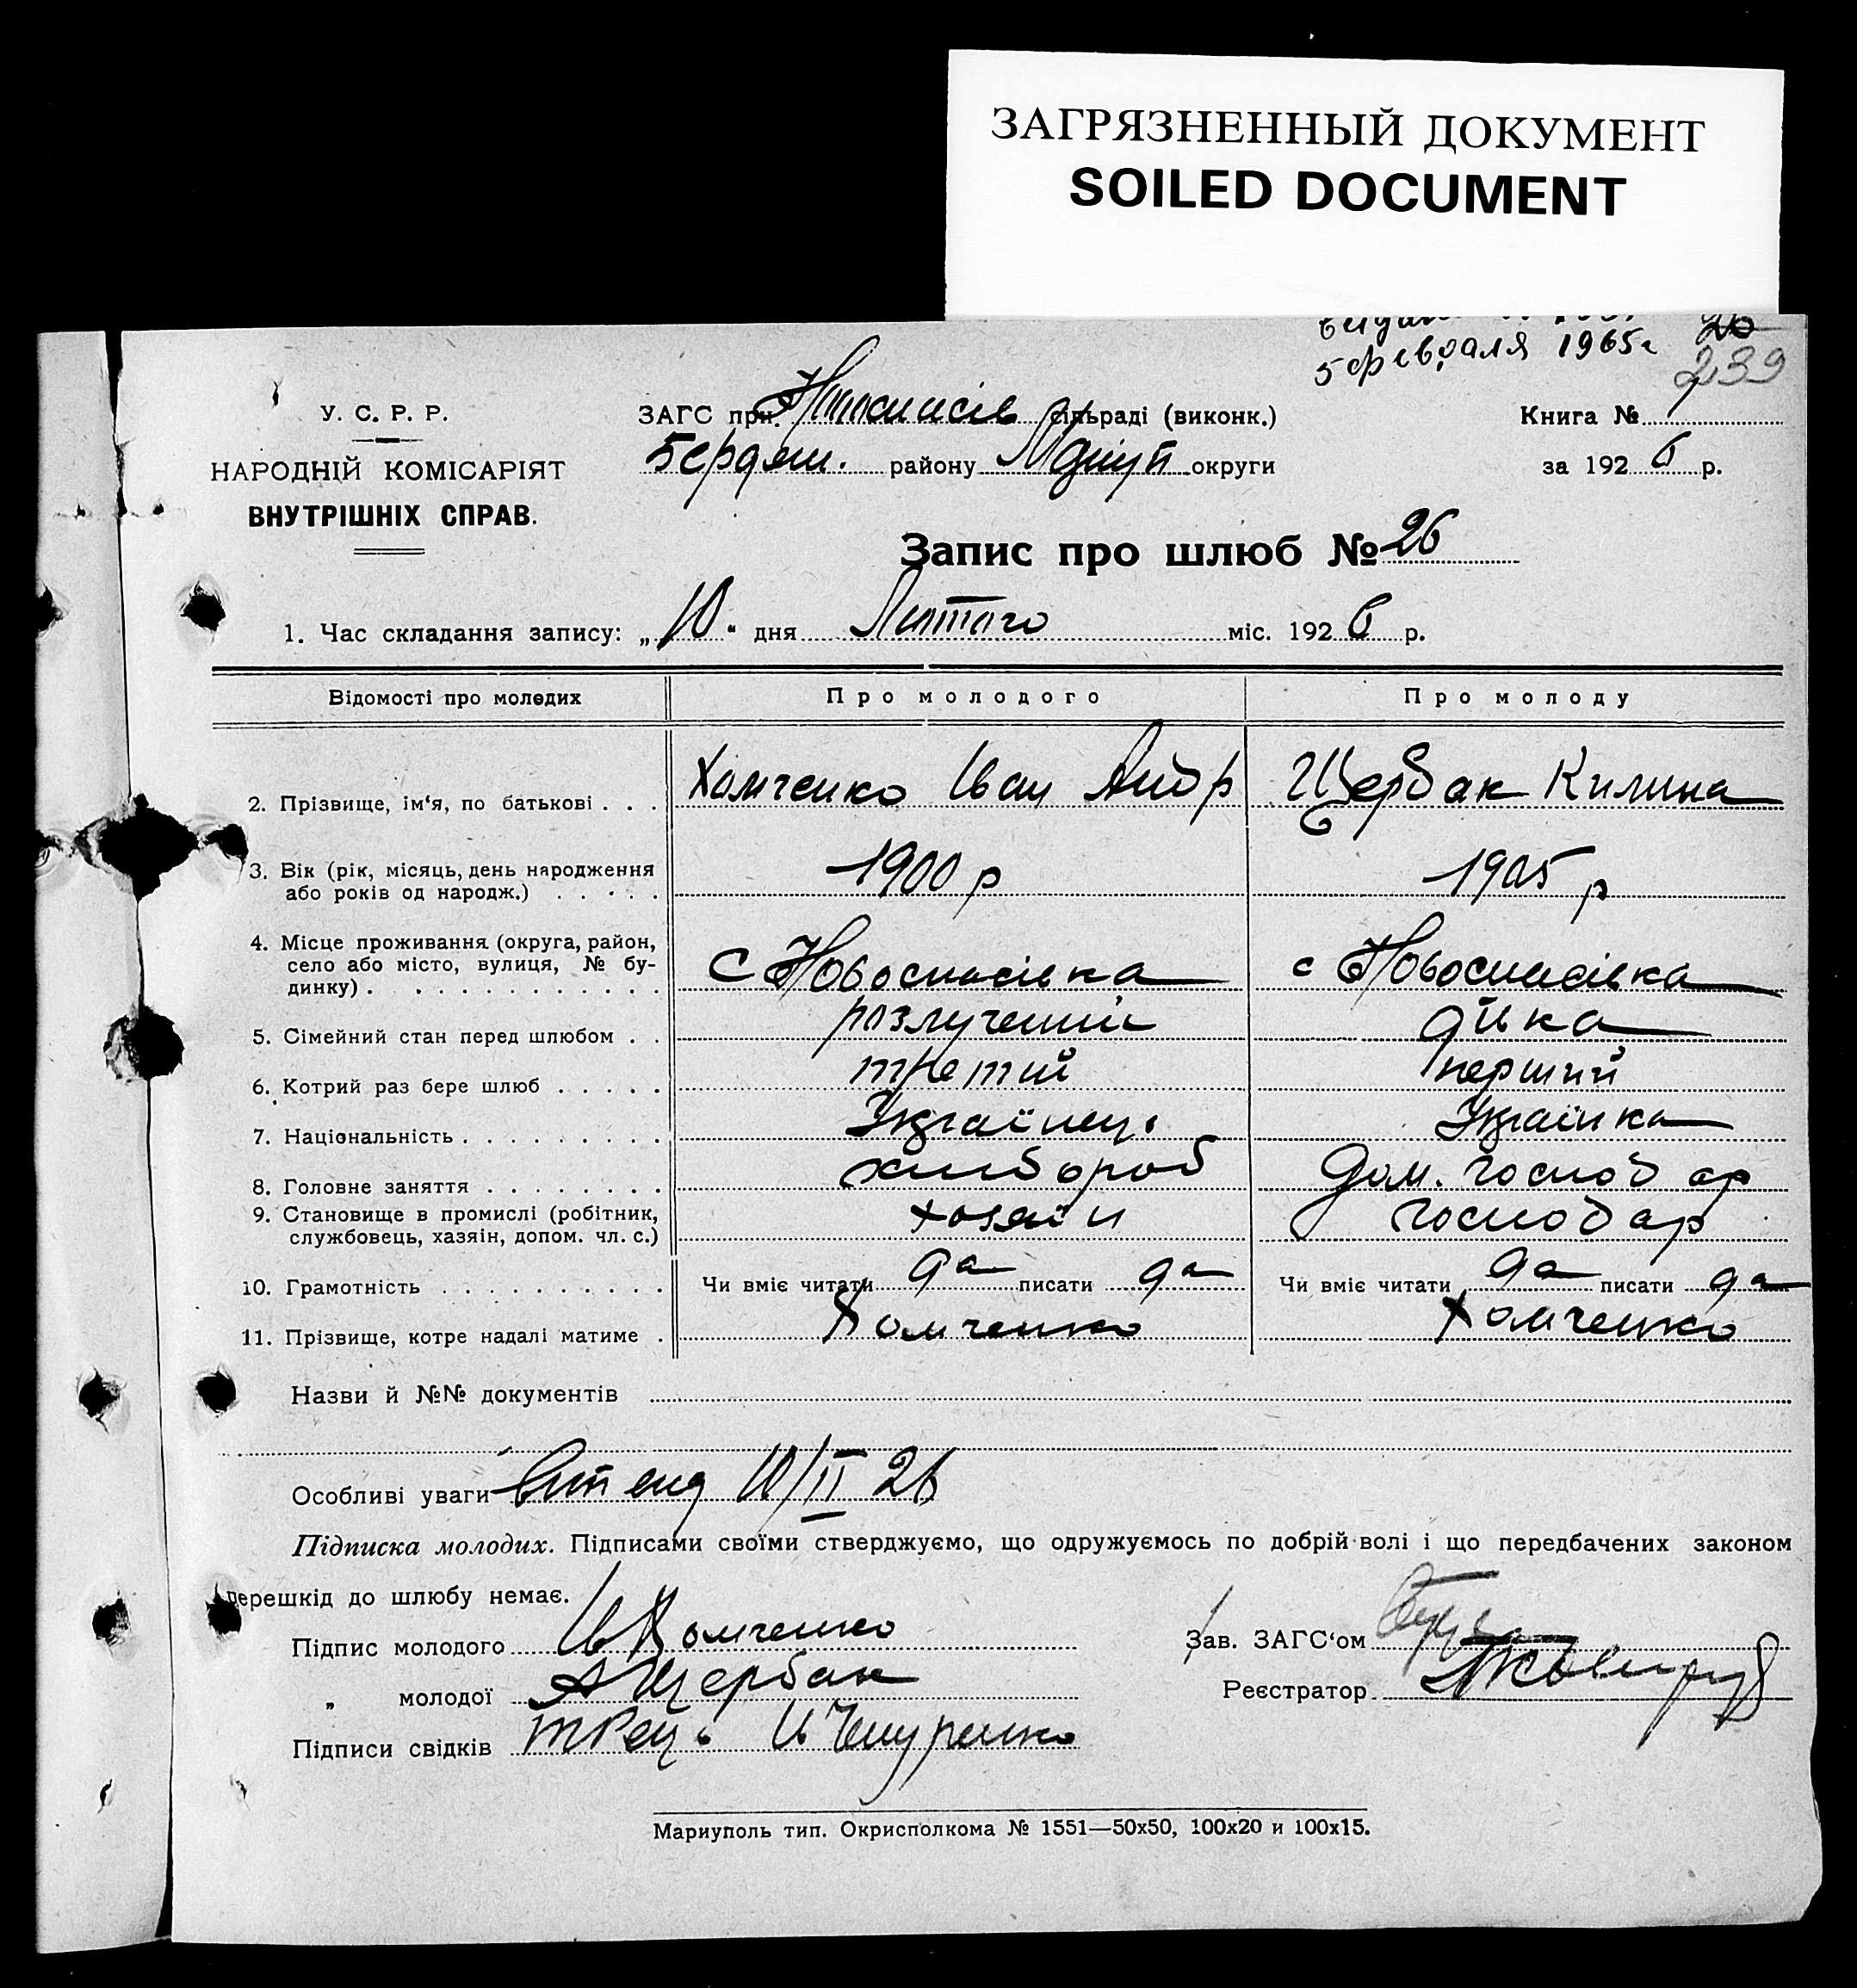 ЗАГРЯЗНЕННЫЙ ДОКУМЕНТ
SOILED DOCUMENT
5 февраля 1965г
26
239
У. С. Р. Р.
НАРОДНІЙ КОМІСАРІЯТ
ВНУТРІШНІХ СПРАВ.
ЗАГС при сільраді (виконк.)
Бердян. району округи
Книга №
за 1926 р.
Запис про шлюб № 26
1. Час складання запису: „10“ дня Лютого міс. 1926 р.
Відомості про молодих Про молодого Про молоду
2. Прізвище, ім‘я, по батькові . . . Хомченко Іван Андр Щербак Килина
3. Вік (рік, місяць, день народження
або років од народж.) . . . . . 1900 р 1905 р
4. Місце проживання (округа, район,
село або місто, вулиця, № бу-
динку) . . . . . . . . . . . . С Новоспасівка с Новоспасівка
5. Сімейний стан перед шлюбом . . розлучений дівка
6. Котрий раз бере шлюб . . . . . третий перший
7. Національність . . . . . . . . . Українець Українка
8. Головне заняття . . . . . . . . хлибороб Дом. господар
9. Становище в промислі (робітник,
службовець, хазяін, допом. чл. с.) хозяїн господар
10. Грамотність . . . . . . . . . . Чи вміє читати да писати да Чи вміє читати да писати да
11. Прізвище, котре надалі матиме . Хомченко Хомченко
Назви й №№ документів
Особливі уваги 10/II 26
Підписка молодих. Підписами своїми стверджуємо, що одружуємось по добрій волі і що передбачених законом
перешкід до шлюбу немає.
Підпис молодого И Хомченко
Зав. ЗАГС‘ом
„ молодої А Щербак
Реєстратор
Підписи свідків
Мариуполь тип. Окрисполкома № 1551—50х50, 100х20 и 100х15.